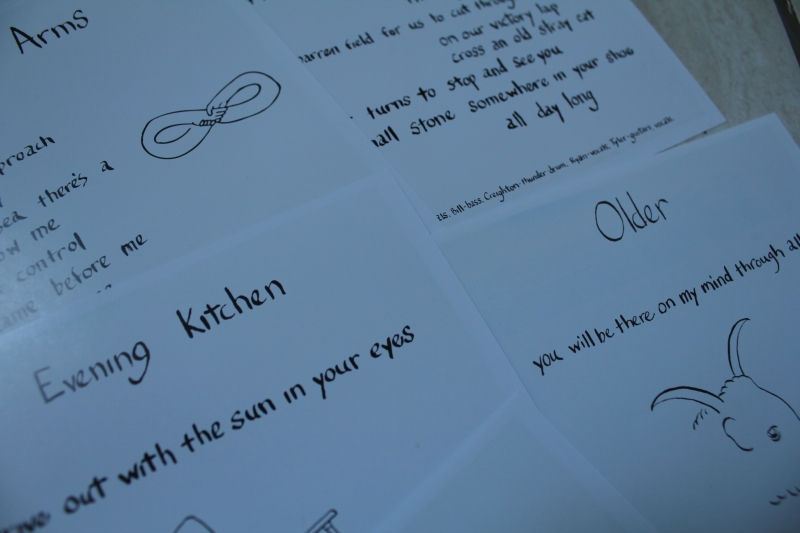 Arms
there's a
me
control
before me
field for us to cut
on our victory lap
cross an old stray cat
turns to stop and see you
stone somewhere in your shoe
all day long
Bill-bass. Creighton-thunder drum.
Evening Kitchen
out with the sun in your eyes
Older
you will be there on my mind through all